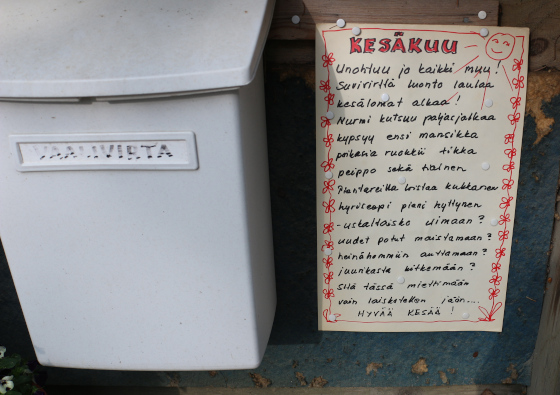 VAALIVIRTA
KESÄKUU
Unohtuu jo kaikki muu!
Suvivirttä luonto laulaa
kesälomat alkaa!
Nurmi kutsuu paljasjalkaa
kypsyy ensi mansikka
poikasia ruokkii tikka
peippo sekä tiainen
Pihantereilla loistaa kukkanen
hyrisempi pieni hyttynen
-uskaltaisko uimaan?
uudet potut maistamaan?
heinähommiin auttamaan?
juurikasta kitkemään?
Sitä tässä miettimään
vain laiskotellen jään....
HYVÄÄ KESÄÄ!